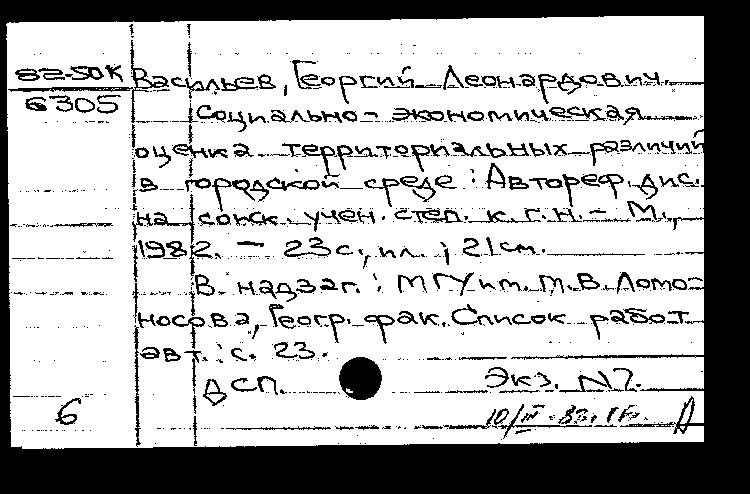 82-50К Васильев, Георгий Леонардович.
6305 Социально-экономическая
оценка территориальных различий
в городской среде : Автореф. дис.
на соиск. учен. степ. к. г. н. - М.,
1982. - 23 с., ил. ; 21 см.
В надзаг. : МГУ им. М. В. Ломо-
носова, Геогр. фак. Список работ
авт. : с. 23.
ДСП. Экз. N7.
6 10/III-83.